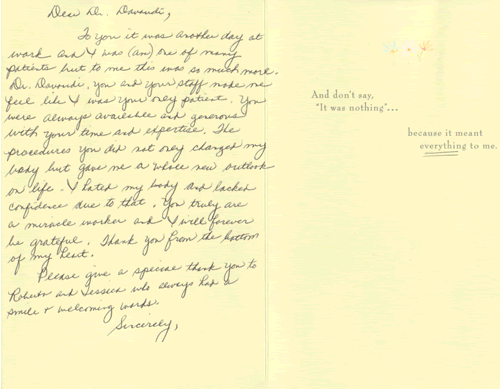 Dear Dr. Davoudi,
To you it was another day at
work and I was (am) one of many
patients but to me this was so much more.
Dr. Davoudi, you and your staff made me
feel like I was your only patient. You
were always available and generous
with your time and expertise. The
procedures you did not only changed my
body but gave me a whole new outlook
on life. I hated my body and lacked
confidence due to that. You truly are
a miracle worker and I will forever
be grateful. Thank you from the bottom
of my heart.
Please give a special thank you to
and Jessica who always had a
smile & welcoming words.
Sincerely,
And don't say,
"It was nothing"...
because it meant
everything to me.